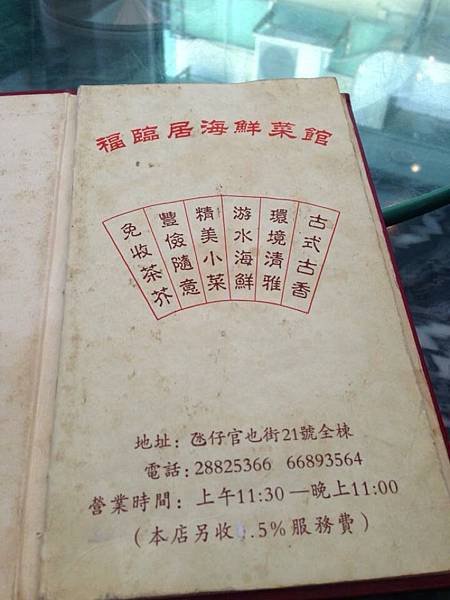 福臨居海鮮菜館
古式古香
環境清雅
游水海鮮
精美小菜
豐儉隨意
免收茶芥
地址：氹仔官也街21號全棟
電話：28825366 66893564
營業時間：上午11:30 —晚上11:00
（本店另收 .5%服務費）